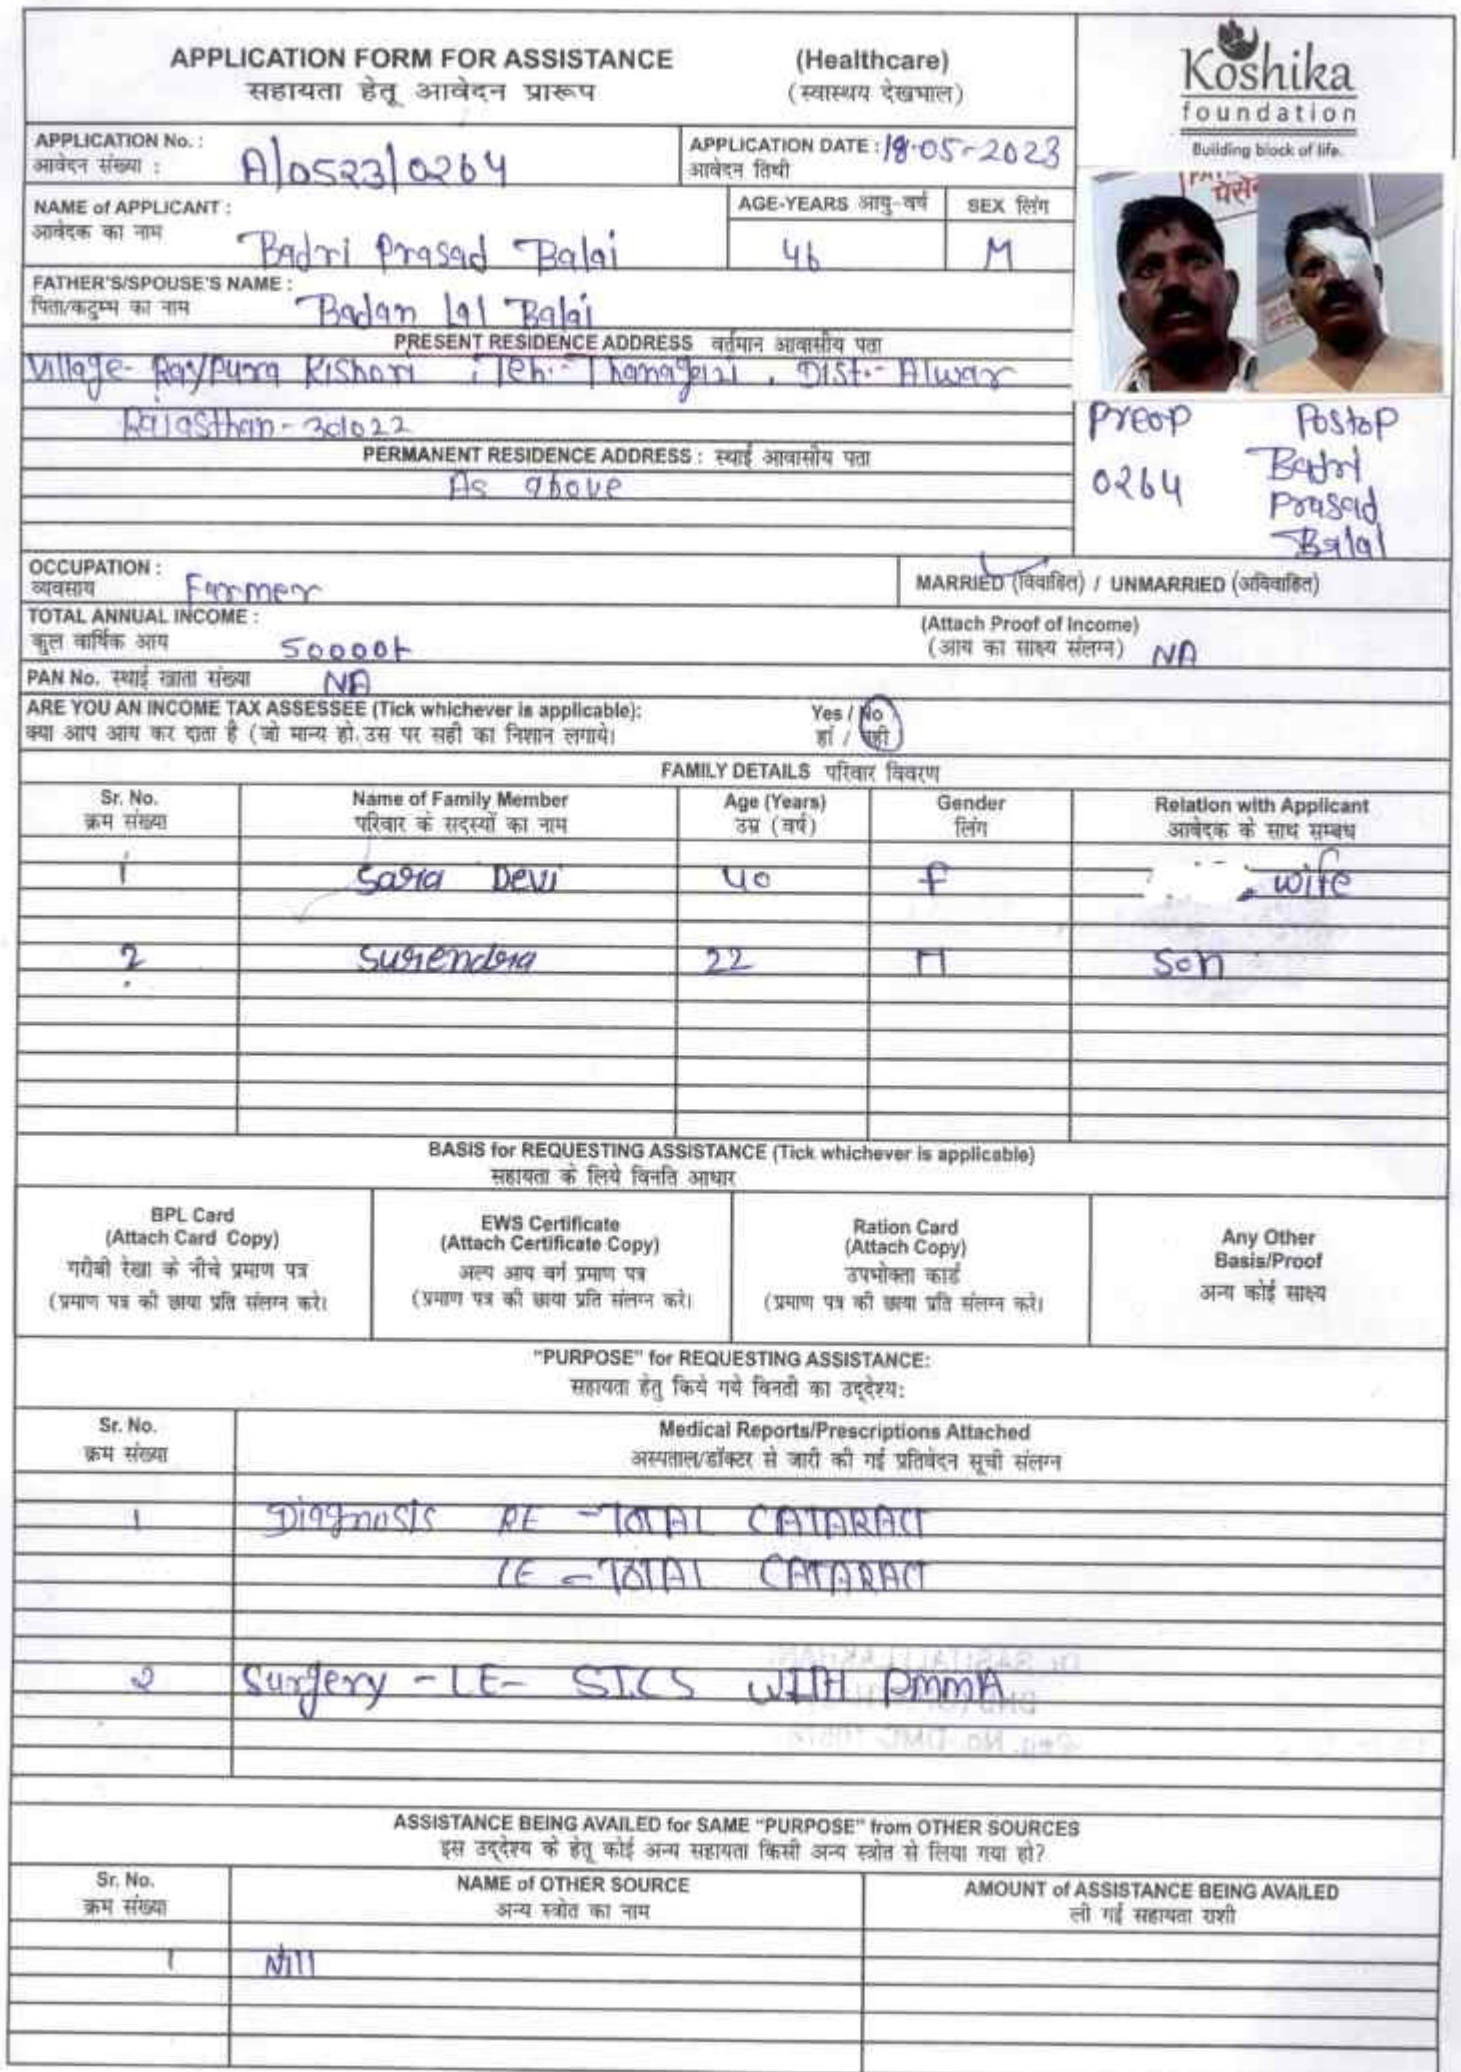 APPLICATION FORM FOR ASSISTANCE (Healthcare)
सहायता हेतू आवेदन प्रारूप (स्वास्थय देखभाल)
Koshika
foundation
Building block of life.
APPLICATION No. : A/0523/0264 APPLICATION DATE : 18-05-2023
आवेदन संख्या : आवेदन तिथी
NAME of APPLICANT : AGE-YEARS आयु-वर्ष SEX लिंग
आवेदक का नाम Badri Prasad Balai 46 M
FATHER'S/SPOUSE'S NAME :
पिता/कटुम्ब का नाम Badan Lal Balai
PRESENT RESIDENCE ADDRESS वर्तमान आवासीय पता
Village- Raypura Kishori , Teh:- Thanagazi , Dist.- Alwar
Rajasthan- 301022
PERMANENT RESIDENCE ADDRESS : स्थाई आवासीय पता
As above
Preop Postop
0264 Badri
Prasad
Balai
OCCUPATION :
व्यवसाय Farmer MARRIED (विवाहित) / UNMARRIED (अविवाहित)
TOTAL ANNUAL INCOME : (Attach Proof of Income)
कुल वार्षिक आय 50000/- (आय का साक्ष्य संलग्न) NA
PAN No. स्थाई खाता संख्या NA
ARE YOU AN INCOME TAX ASSESSEE (Tick whichever is applicable): Yes / No
क्या आप आय कर दाता है (जो मान्य हो उस पर सही का निशान लगाये। हां / नही
FAMILY DETAILS परिवार विवरण
Sr. No. Name of Family Member Age (Years) Gender Relation with Applicant
क्रम संख्या परिवार के सदस्यों का नाम उम्र (वर्ष) लिंग आवेदक के साथ सम्बध
1 Saria Devi 40 F wife
2 Surendra 22 M Son
BASIS for REQUESTING ASSISTANCE (Tick whichever is applicable)
सहायता के लिये विनति आधार
BPL Card
(Attach Card Copy)
गरीबी रेखा के नीचे प्रमाण पत्र
(प्रमाण पत्र की छाया प्रति संलग्न करे।
EWS Certificate
(Attach Certificate Copy)
अल्प आय वर्ग प्रमाण पत्र
(प्रमाण पत्र की छाया प्रति संलग्न करे।
Ration Card
(Attach Copy)
उपभोक्ता कार्ड
(प्रमाण पत्र की छाया प्रति संलग्न करे।
Any Other
Basis/Proof
अन्य कोई साक्ष्य
"PURPOSE" for REQUESTING ASSISTANCE:
सहायता हेतु किये गये विनती का उद्देश्य:
Sr. No. Medical Reports/Prescriptions Attached
क्रम संख्या अस्पताल/डॉक्टर से जारी की गई प्रतिवेदन सूची संलग्न
1 Diagnosis RE - TOTAL CATARACT
LE - TOTAL CATARACT
2 Surgery - LE- SICS WITH PMMA
ASSISTANCE BEING AVAILED for SAME "PURPOSE" from OTHER SOURCES
इस उद्देश्य के हेतू कोई अन्य सहायता किसी अन्य स्त्रोत से लिया गया हो?
Sr. No. NAME of OTHER SOURCE AMOUNT of ASSISTANCE BEING AVAILED
क्रम संख्या अन्य स्त्रोत का नाम ली गई सहायता राशी
1 Nill